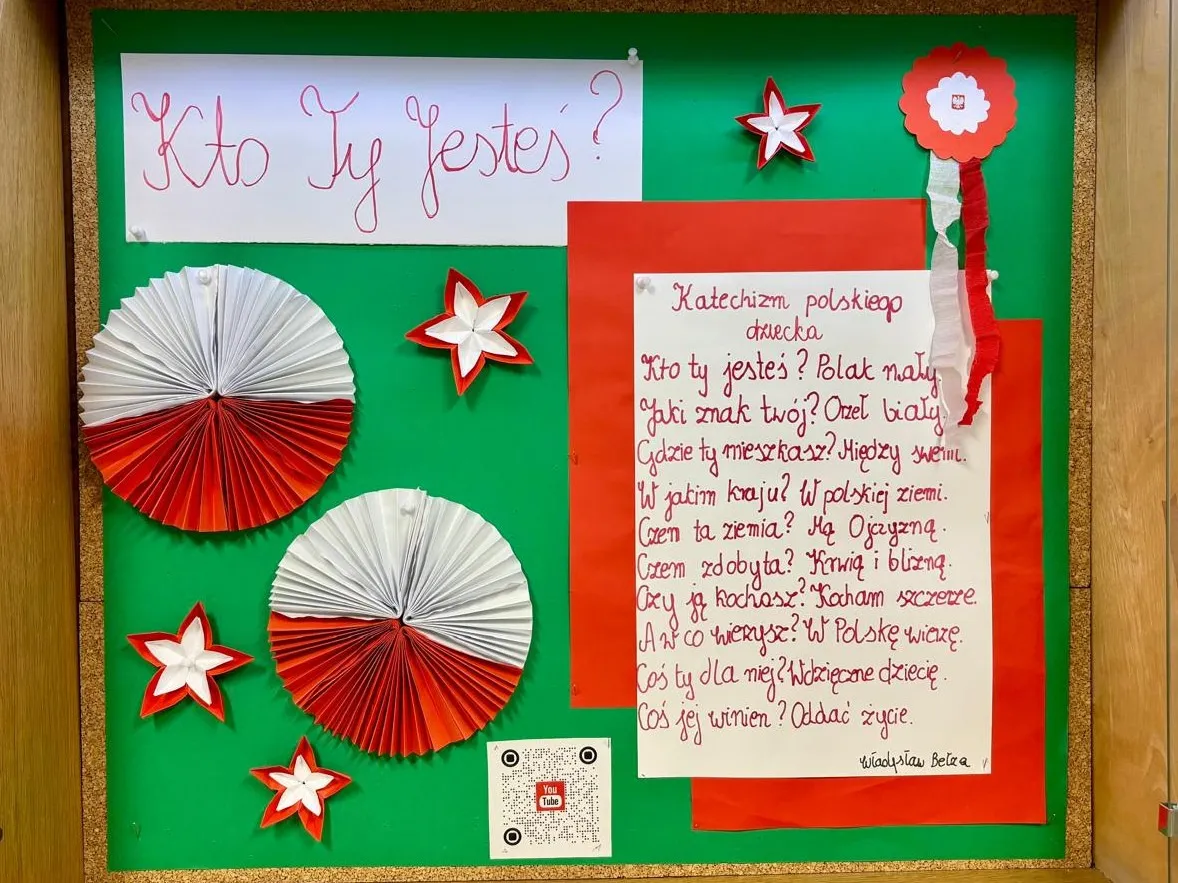 Kto Ty Jesteś?
Katechizm polskiego
dziecka
Kto ty jesteś? Polak mały
Jaki znak twój? Orzeł biały.
Gdzie ty mieszkasz? Między swemi.
W jakim kraju? W polskiej ziemi.
Czem ta ziemia? Mą Ojczyzną.
Czem zdobyta? Krwią i blizną.
Czy ją kochasz? Kocham szczerze.
A w co wierzysz? W Polskę wierzę.
Coś ty dla niej? Wdzięczne dziecię.
Coś jej winien? Oddać życie.
Władysław Bełza
You
Tube